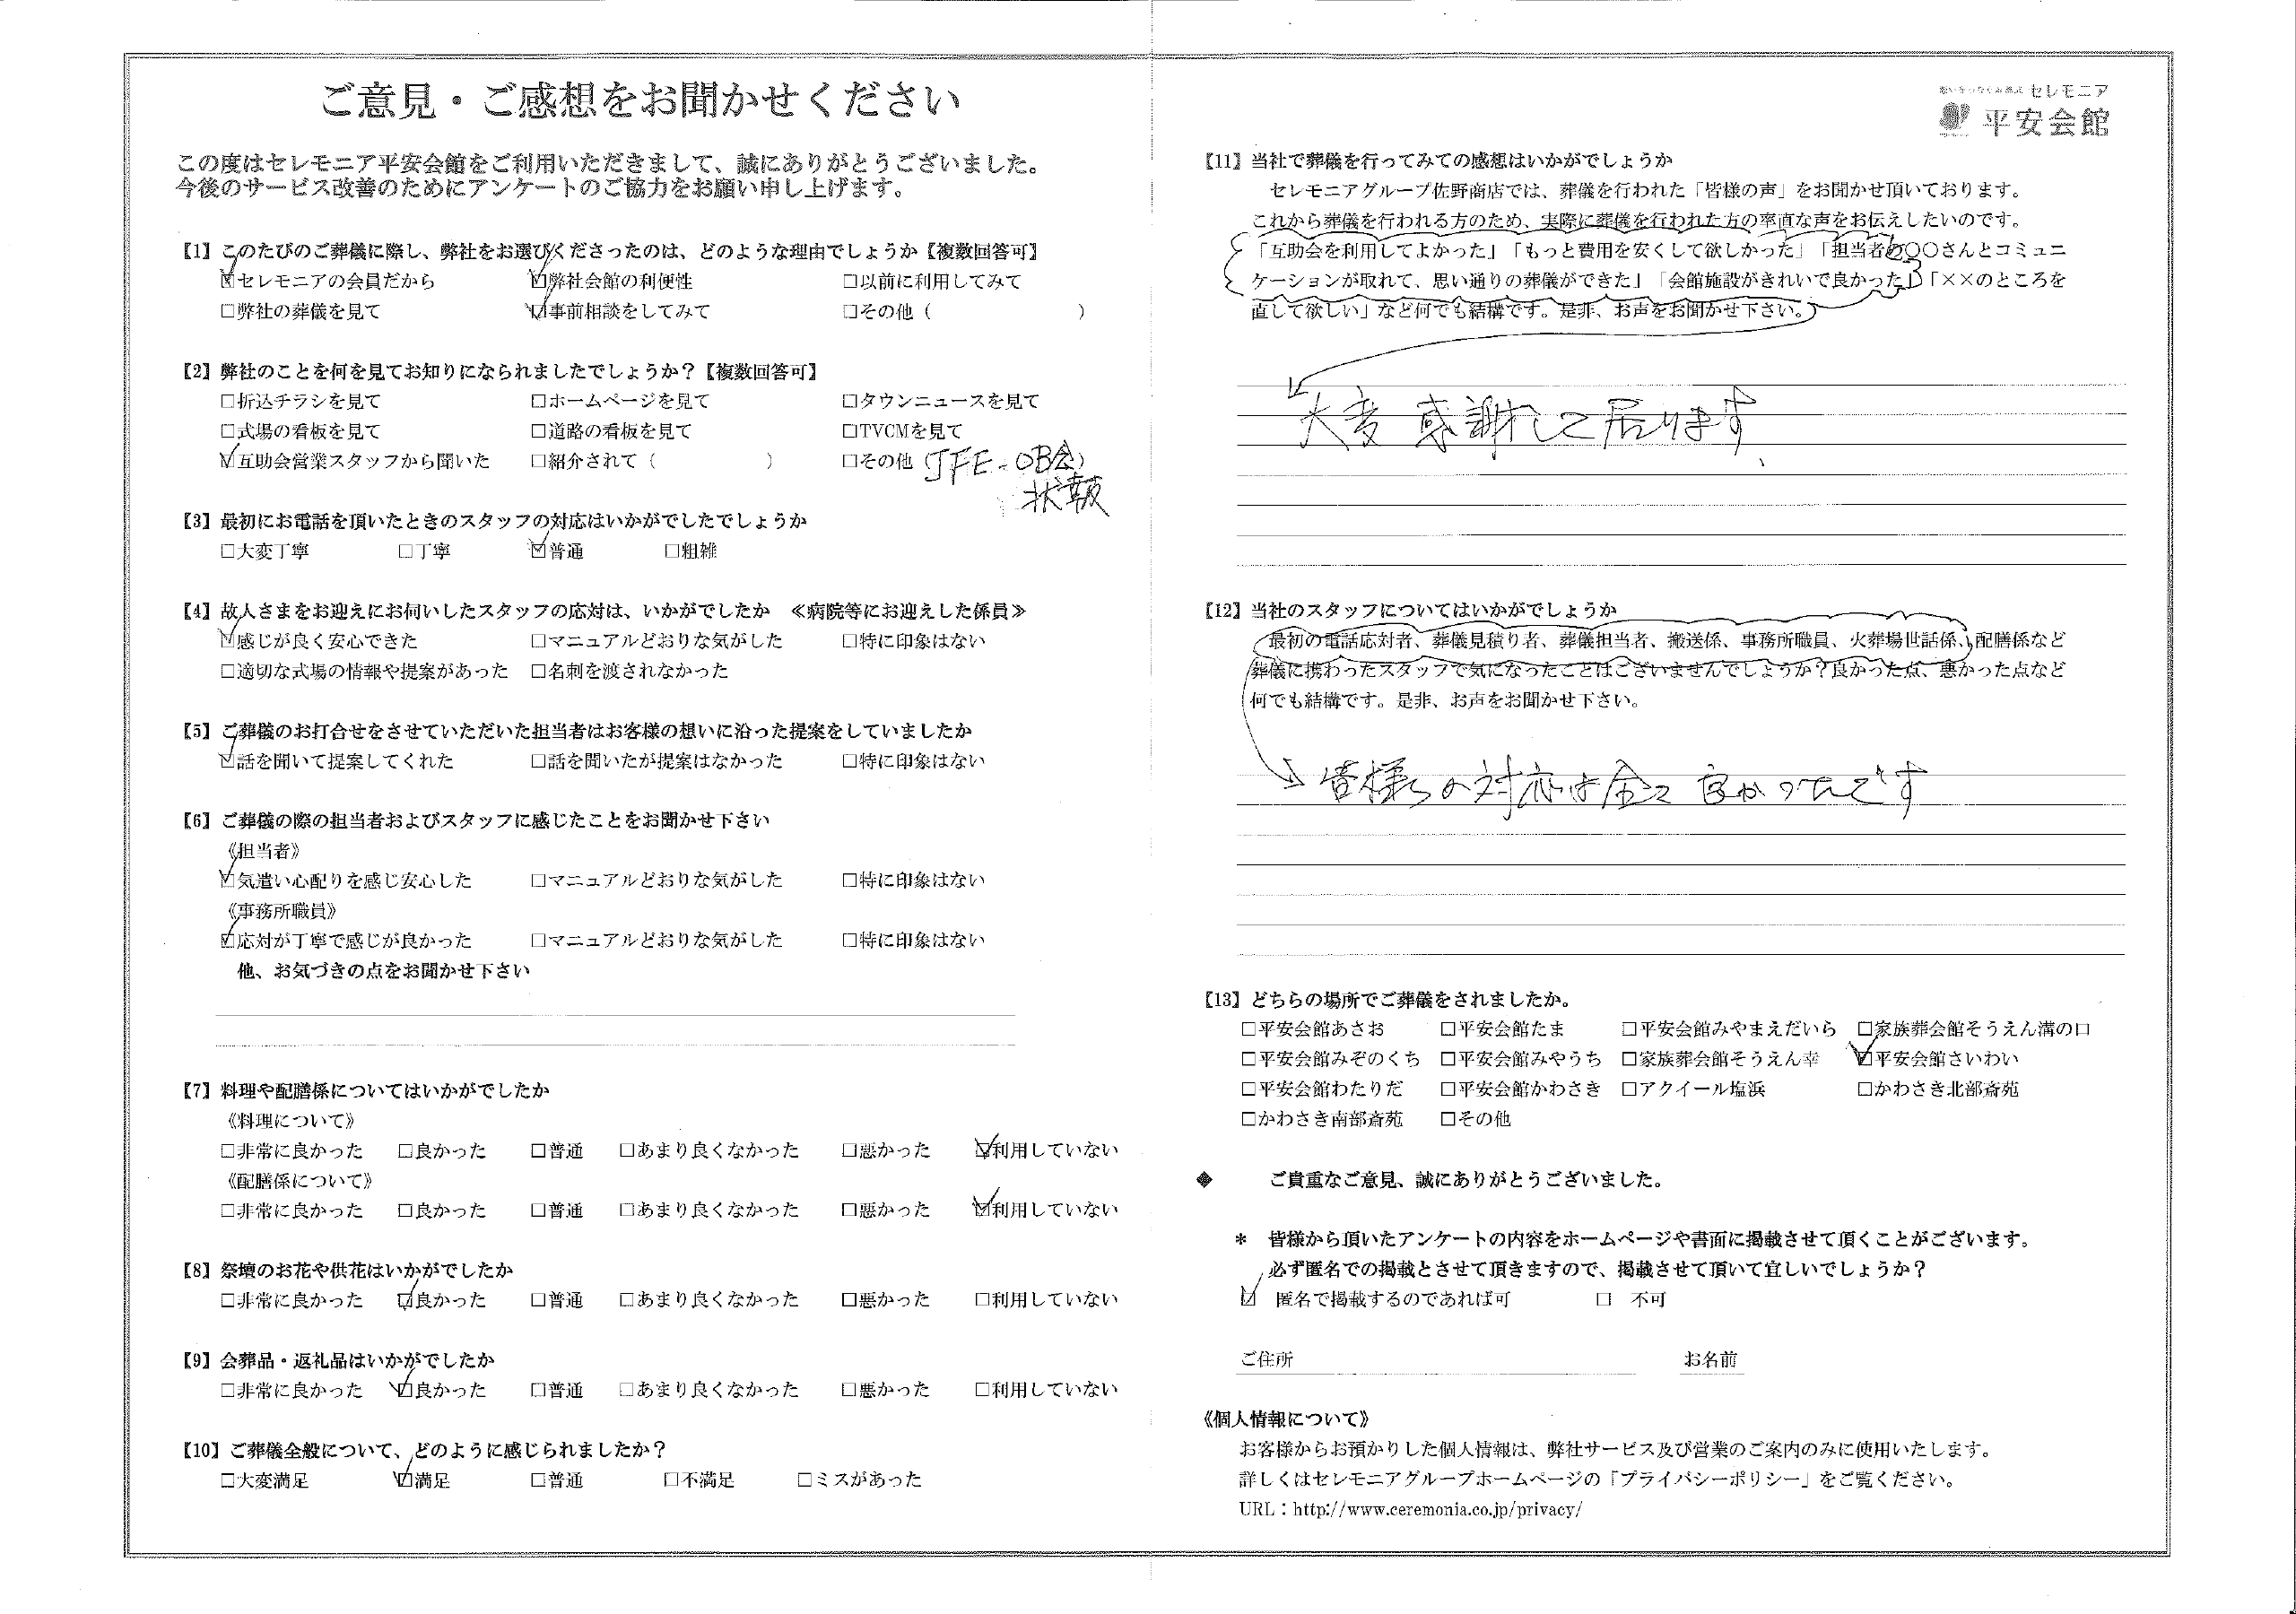 ご意見・ご感想をお聞かせください
この度はセレモニア平安会館をご利用いただきまして、誠にありがとうございました。
今後のサービス改善のためにアンケートのご協力をお願い申し上げます。
【1】このたびのご葬儀に際し、弊社をお選びくださったのは、どのような理由でしょうか【複数回答可】
☑セレモニアの会員だから ☑弊社会館の利便性 □以前に利用してみて
□弊社の葬儀を見て ☑事前相談をしてみて □その他（ ）
【2】弊社のことを何を見てお知りになられましたでしょうか？【複数回答可】
□折込チラシを見て □ホームページを見て □タウンニュースを見て
□式場の看板を見て □道路の看板を見て □TVCMを見て
☑互助会営業スタッフから聞いた □紹介されて（ ） □その他（JFE-OB会）
状報
【3】最初にお電話を頂いたときのスタッフの対応はいかがでしたでしょうか
□大変丁寧 □丁寧 ☑普通 □粗雑
【4】故人さまをお迎えにお伺いしたスタッフの応対は、いかがでしたか ≪病院等にお迎えした係員≫
☑感じが良く安心できた □マニュアルどおりな気がした □特に印象はない
□適切な式場の情報や提案があった □名刺を渡されなかった
【5】ご葬儀のお打合せをさせていただいた担当者はお客様の想いに沿った提案をしていましたか
☑話を聞いて提案してくれた □話を聞いたが提案はなかった □特に印象はない
【6】ご葬儀の際の担当者およびスタッフに感じたことをお聞かせ下さい
《担当者》
☑気遣い心配りを感じ安心した □マニュアルどおりな気がした □特に印象はない
《事務所職員》
☑応対が丁寧で感じが良かった □マニュアルどおりな気がした □特に印象はない
他、お気づきの点をお聞かせ下さい
【7】料理や配膳係についてはいかがでしたか
《料理について》
□非常に良かった □良かった □普通 □あまり良くなかった □悪かった ☑利用していない
《配膳係について》
□非常に良かった □良かった □普通 □あまり良くなかった □悪かった ☑利用していない
【8】祭壇のお花や供花はいかがでしたか
□非常に良かった ☑良かった □普通 □あまり良くなかった □悪かった □利用していない
【9】会葬品・返礼品はいかがでしたか
□非常に良かった ☑良かった □普通 □あまり良くなかった □悪かった □利用していない
【10】ご葬儀全般について、どのように感じられましたか？
□大変満足 ☑満足 □普通 □不満足 □ミスがあった
セレモニア
平安会館
【11】当社で葬儀を行ってみての感想はいかがでしょうか
セレモニアグループ佐野商店では、葬儀を行われた「皆様の声」をお聞かせ頂いております。
これから葬儀を行われる方のため、実際に葬儀を行われた方の率直な声をお伝えしたいのです。
「互助会を利用してよかった」「もっと費用を安くして欲しかった」「担当者の〇〇さんとコミュニ
ケーションが取れて、思い通りの葬儀ができた」「会館施設がきれいで良かった」「××のところを
直して欲しい」など何でも結構です。是非、お声をお聞かせ下さい。
大変感謝して居ります
【12】当社のスタッフについてはいかがでしょうか
最初の電話応対者、葬儀見積り者、葬儀担当者、搬送係、事務所職員、火葬場世話係、配膳係など
葬儀に携わったスタッフで気になったことはございませんでしょうか？良かった点、悪かった点など
何でも結構です。是非、お声をお聞かせ下さい。
皆様らの対応は全て良かったです
【13】どちらの場所でご葬儀をされましたか。
□平安会館あさお □平安会館たま □平安会館みやまえだいら □家族葬会館そうえん溝の口
□平安会館みぞのくち □平安会館みやうち □家族葬会館そうえん幸 ☑平安会館さいわい
□平安会館わたりだ □平安会館かわさき □アクイール塩浜 □かわさき北部斎苑
□かわさき南部斎苑 □その他
◆ ご貴重なご意見、誠にありがとうございました。
＊ 皆様から頂いたアンケートの内容をホームページや書面に掲載させて頂くことがございます。
必ず匿名での掲載とさせて頂きますので、掲載させて頂いて宜しいでしょうか？
☑ 匿名で掲載するのであれば可 □ 不可
ご住所 お名前
《個人情報について》
お客様からお預かりした個人情報は、弊社サービス及び営業のご案内のみに使用いたします。
詳しくはセレモニアグループホームページの「プライバシーポリシー」をご覧ください。
URL：http://www.ceremonia.co.jp/privacy/